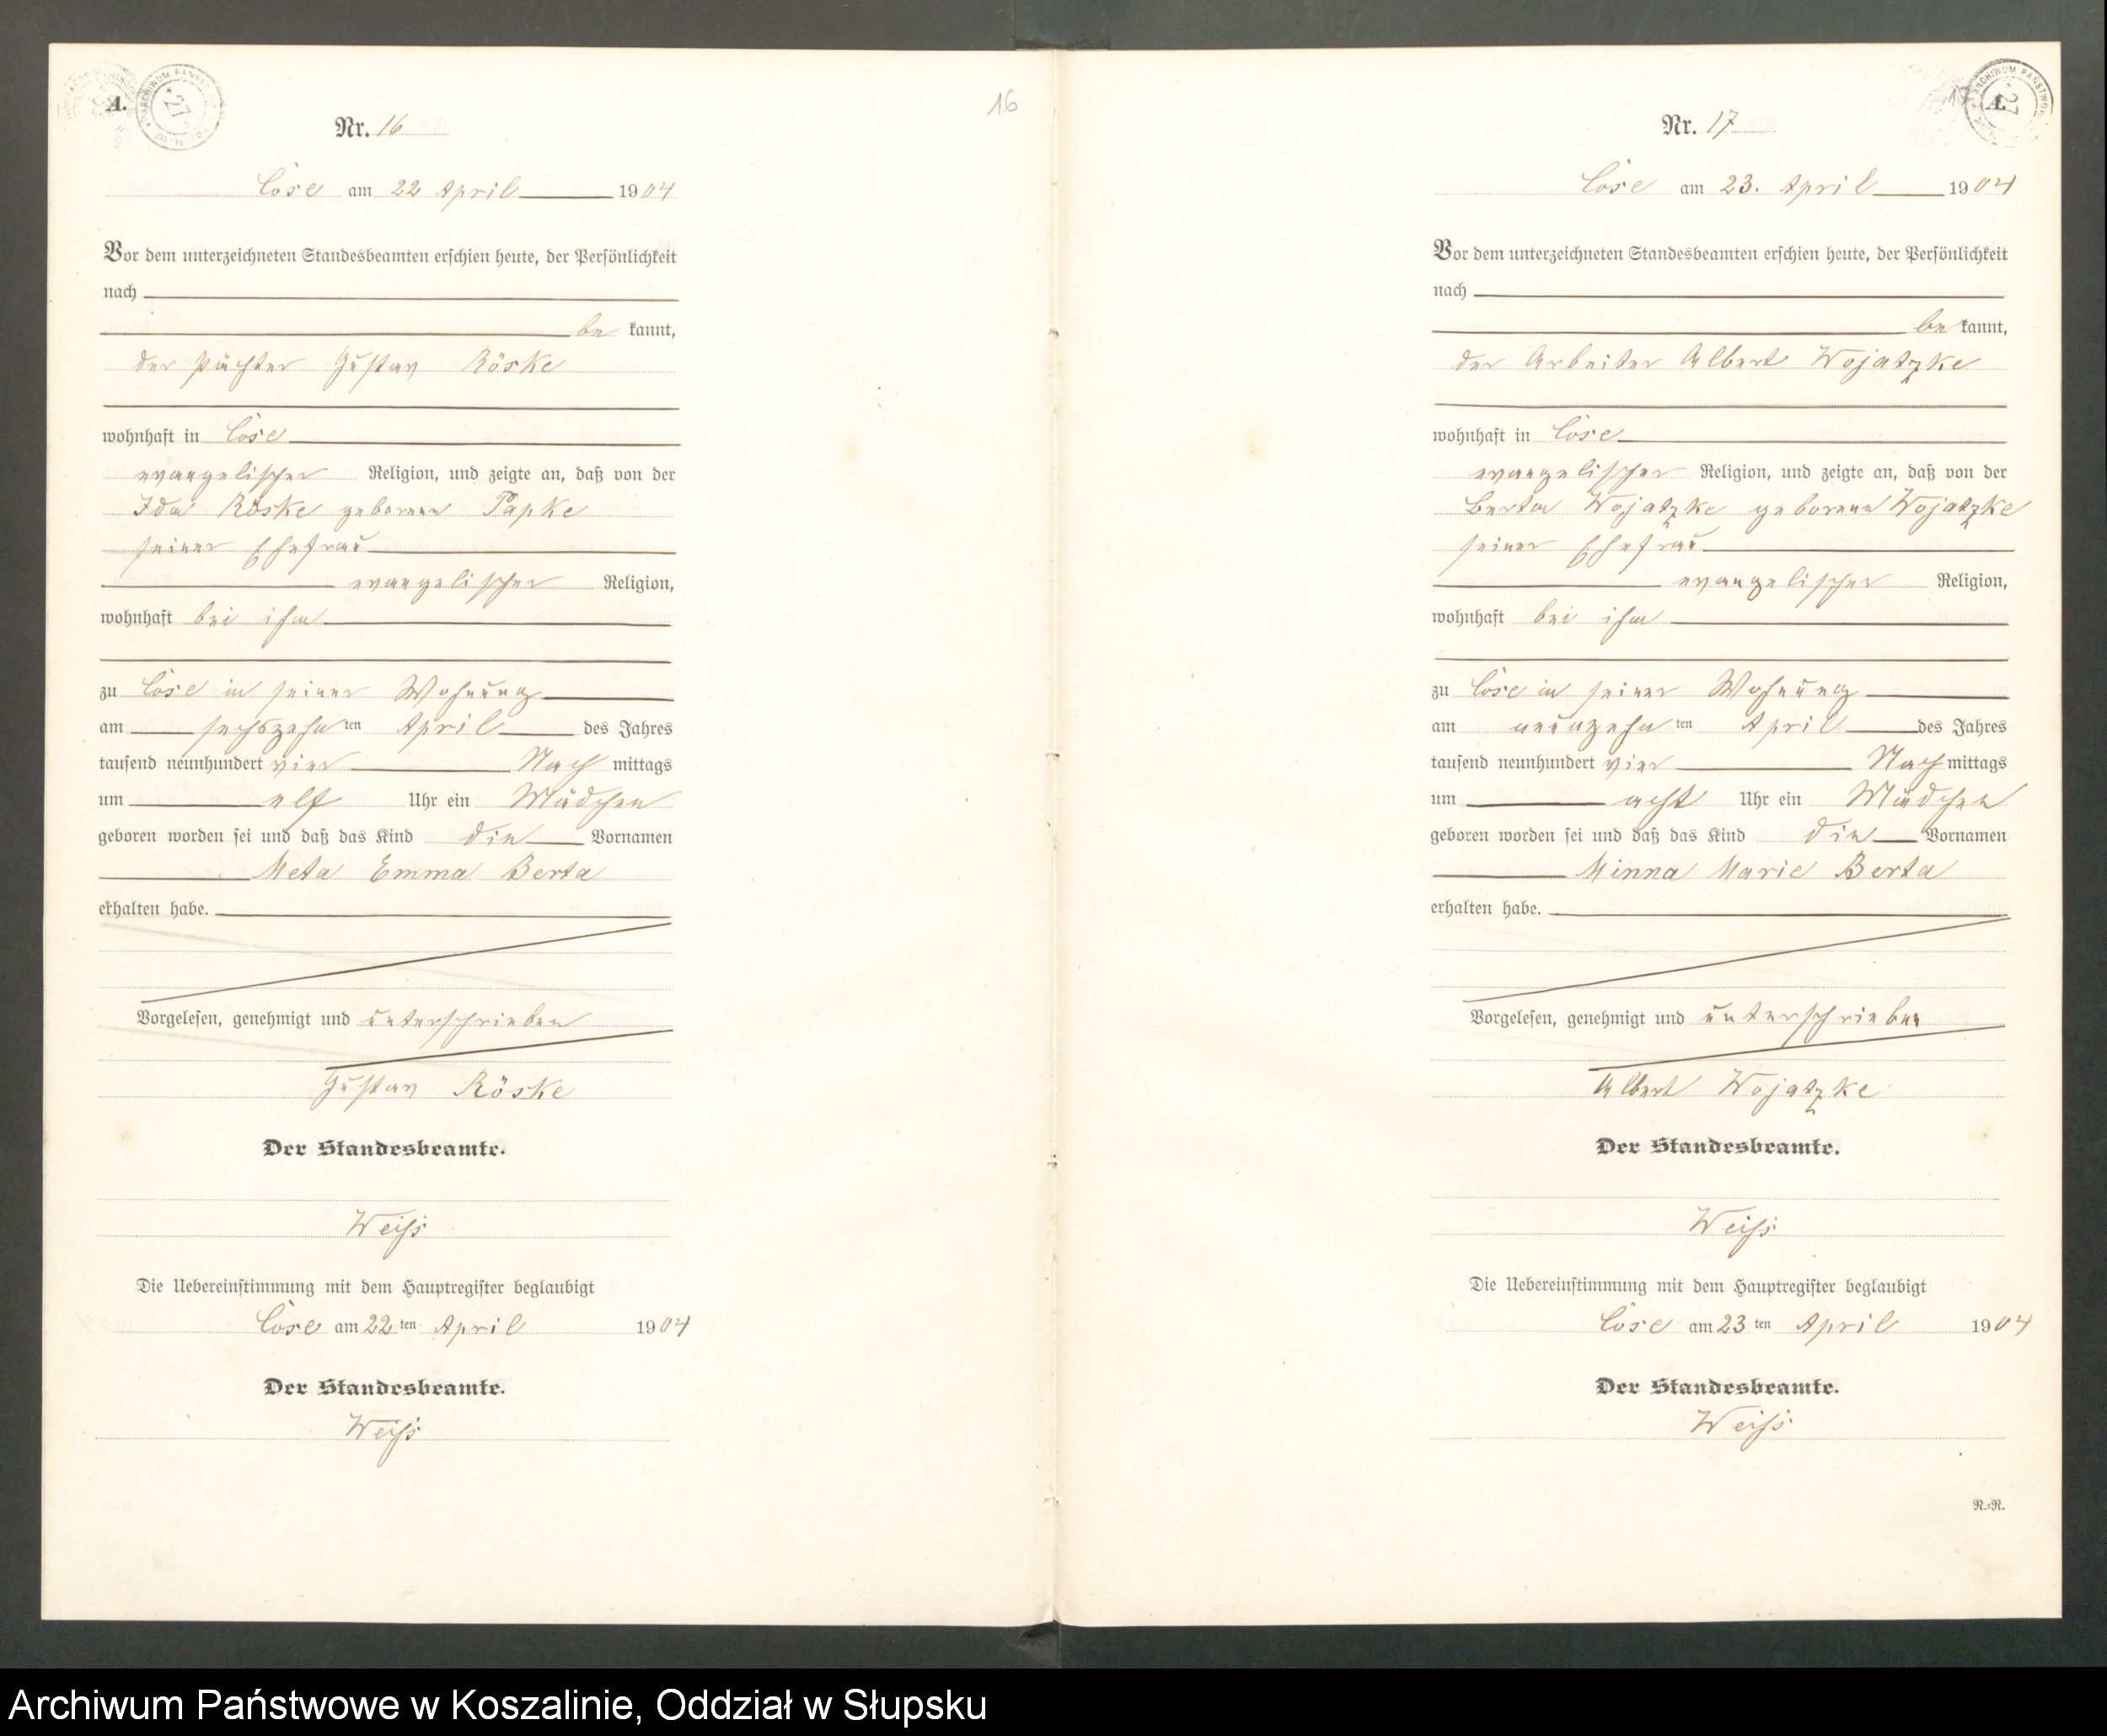 A.
Nr. 16
Cöse am 22 April 1904
Vor dem unterzeichneten Standesbeamten erschien heute, der Persönlichkeit
nach
be kannt,
der Pächter Gustav Röske
wohnhaft in Cöse
evangelischer Religion, und zeigte an, daß von der
Ida Röske geborenen Papke
seiner Ehefrau
evangelischer Religion,
wohnhaft bei ihm
zu Cöse in seiner Wohnung
am sechszehnten April des Jahres
tausend neunhundert vier Nach mittags
um elf Uhr ein Mädchen
geboren worden sei und daß das Kind die Vornamen
Meta Emma Berta
erhalten habe.
Vorgelesen, genehmigt und unterschrieben
Gustav Röske
Der Standesbeamte.
Weiß
Die Uebereinstimmung mit dem Hauptregister beglaubigt
Cöse am 22 ten April 1904
Der Standesbeamte.
Weiß
16
A.
Nr. 17
Cöse am 23. April 1904
Vor dem unterzeichneten Standesbeamten erschien heute, der Persönlichkeit
nach
be kannt,
der Arbeiter Albert Wojatzke
wohnhaft in Cöse
evangelischer Religion, und zeigte an, daß von der
Berta Wojatzke geborenen Wojatzke
seiner Ehefrau
evangelischer Religion,
wohnhaft bei ihm
zu Cöse in seiner Wohnung
am neunzehnten April des Jahres
tausend neunhundert vier Nach mittags
um acht Uhr ein Mädchen
geboren worden sei und daß das Kind die Vornamen
Minna Marie Berta
erhalten habe.
Vorgelesen, genehmigt und unterschrieben
Albert Wojatzke
Der Standesbeamte.
Weiß
Die Uebereinstimmung mit dem Hauptregister beglaubigt
Cöse am 23 ten April 1904
Der Standesbeamte.
Weiß
N.=N.
Archiwum Państwowe w Koszalinie, Oddział w Słupsku